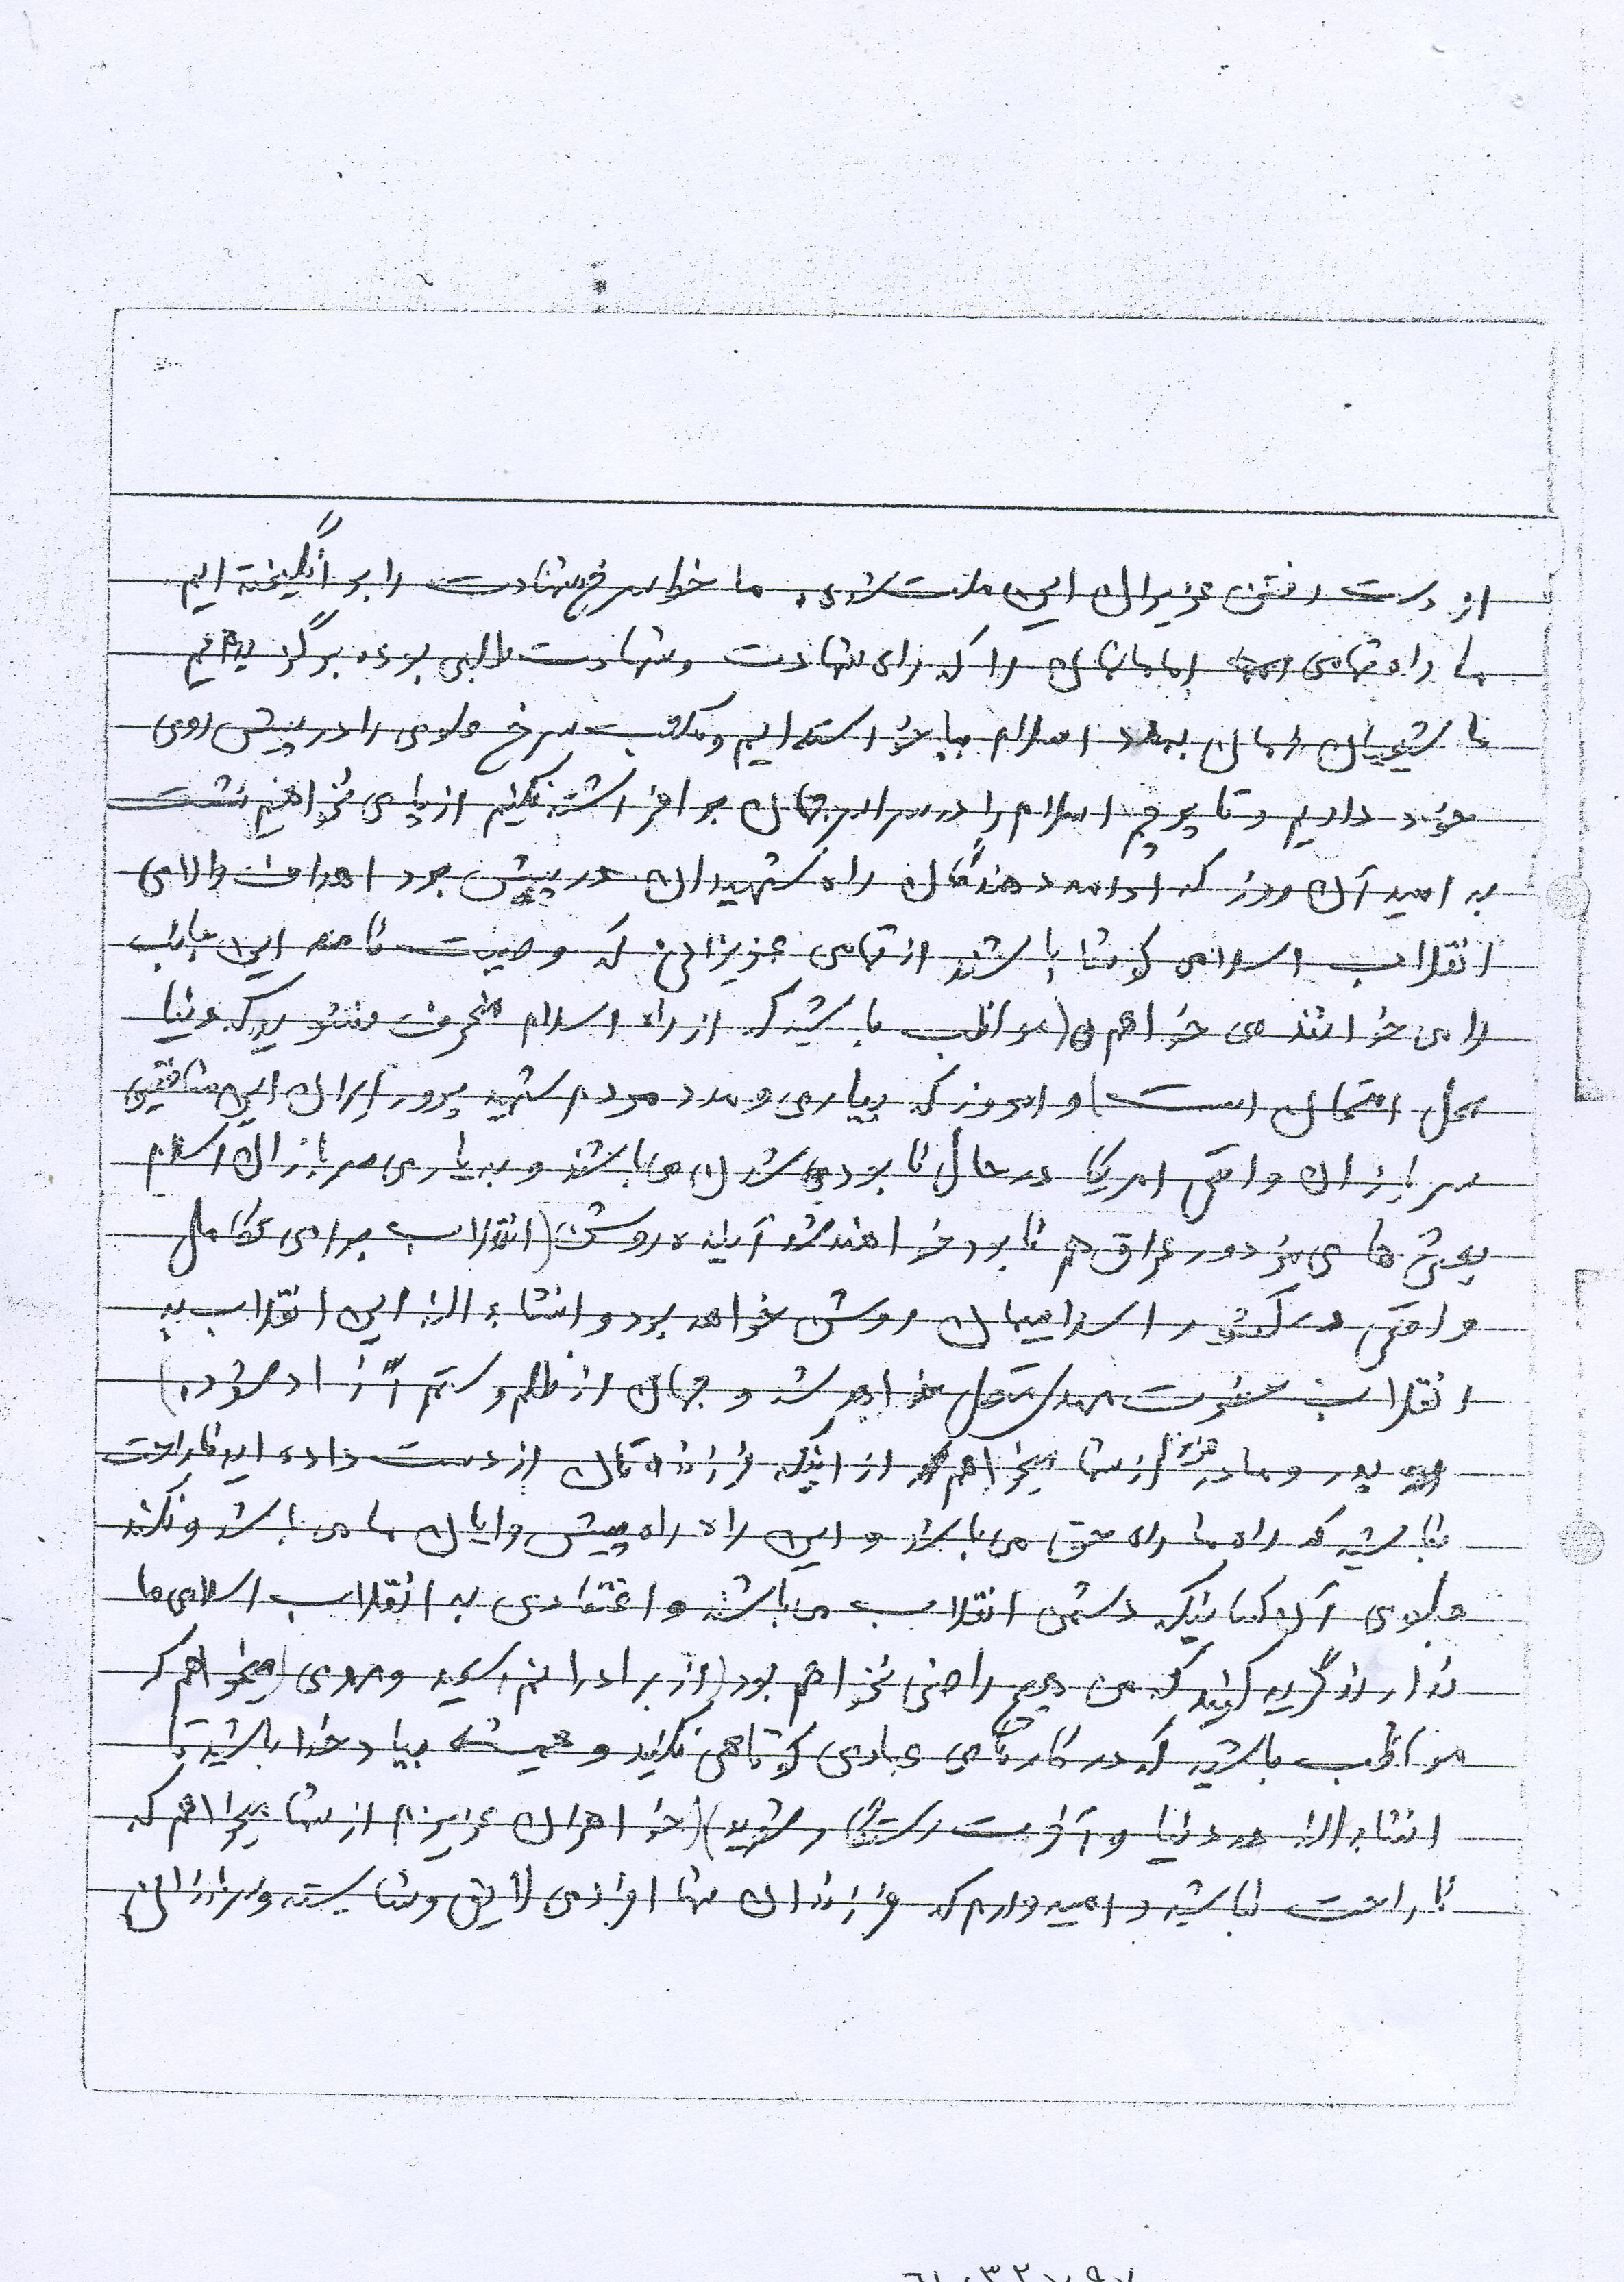 از دست رفتن عزیزان این ملت شدی. ما خواب سرخ شهادت را بر انگیخته ایم
ما راه تمامی امامانمان را که راه شهادت و شهادت طلبی بوده برگزیدیم
ما شیعیان زمان به مدد اسلام بپا خواسته ایم و مکتب سرخ علوی را در پیش روی
خود داریم و تا پرچم اسلام را در سراسر جهان بر افراشته نکنیم از پای نخواهیم نشست
به امید آن روز که ادامه دهندگان راه شهیدان در پیش برد اهداف والای
انقلاب اسلامی کوشا باشند از تمامی عزیزانی که وصیت نامه این جانب
را می خوانند می خواهم (مواظب باشید که از راه اسلام منحرف نشوید که دنیا
محل امتحان است) و امروز که بیاری و مدد مردم شهید پرور ایران این منافقین
سربازان واقعی امریکا در حال نابودی شدن می باشند و به یاری سربازان اسلام
بعثی های مزدور عراق هم نابود خواهند شد آینده روشن (انقلاب برای تکامل
واقعی در کشور اسلامیمان روشن خواهد بود و انشاء الله این انقلاب به
انقلاب حضرت مهدی متصل خواهد شد و جهان از ظلم و ستم آزاد شود.)
پدر و مادر عزیز از شما میخواهم که از اینکه فرزندتان از دست داده اید ناراحت
نباشید که راه ما راه حق می باشد و این راه راه پیش وایان ما می باشد و نکند
جلوی آن کسانیکه دشمن انقلاب می باشند و اعتقادی به انقلاب اسلامی ما
ندارند گریه کنید که من هیچ راضی نخواهم بود (از برادرانم سعید و مهدی میخواهم که
مواظب باشید که در کارهای عبادی کوتاهی نکنید و همیشه بیاد خدا باشید تا
انشاء الله در دنیا و آخرت رستگار شوید) (خواهران عزیزم از شما میخواهم که
ناراحت نباشید و امیدوارم که فرزندان شما افرادی لایق و شایسته و سربازانی